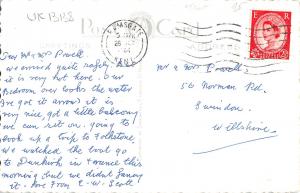 UK BR8
POST CARD
RAMSGATE
E R
Dear Mr & Mrs Powell.
we arrived quite safely and
it is very hot here. Our
bedroom over looks the water
Are got it arrow it is
very nice, got a little balcony
we can sit on. going to
book up a trip to Folkstone.
We watched the boat go
to Dunkirk in France this
morning but we didn't fancy
it. Love From E. W. Scott
Mr & Mrs Powell.
56 Norman Rd.
Swindon.
Wiltshire.